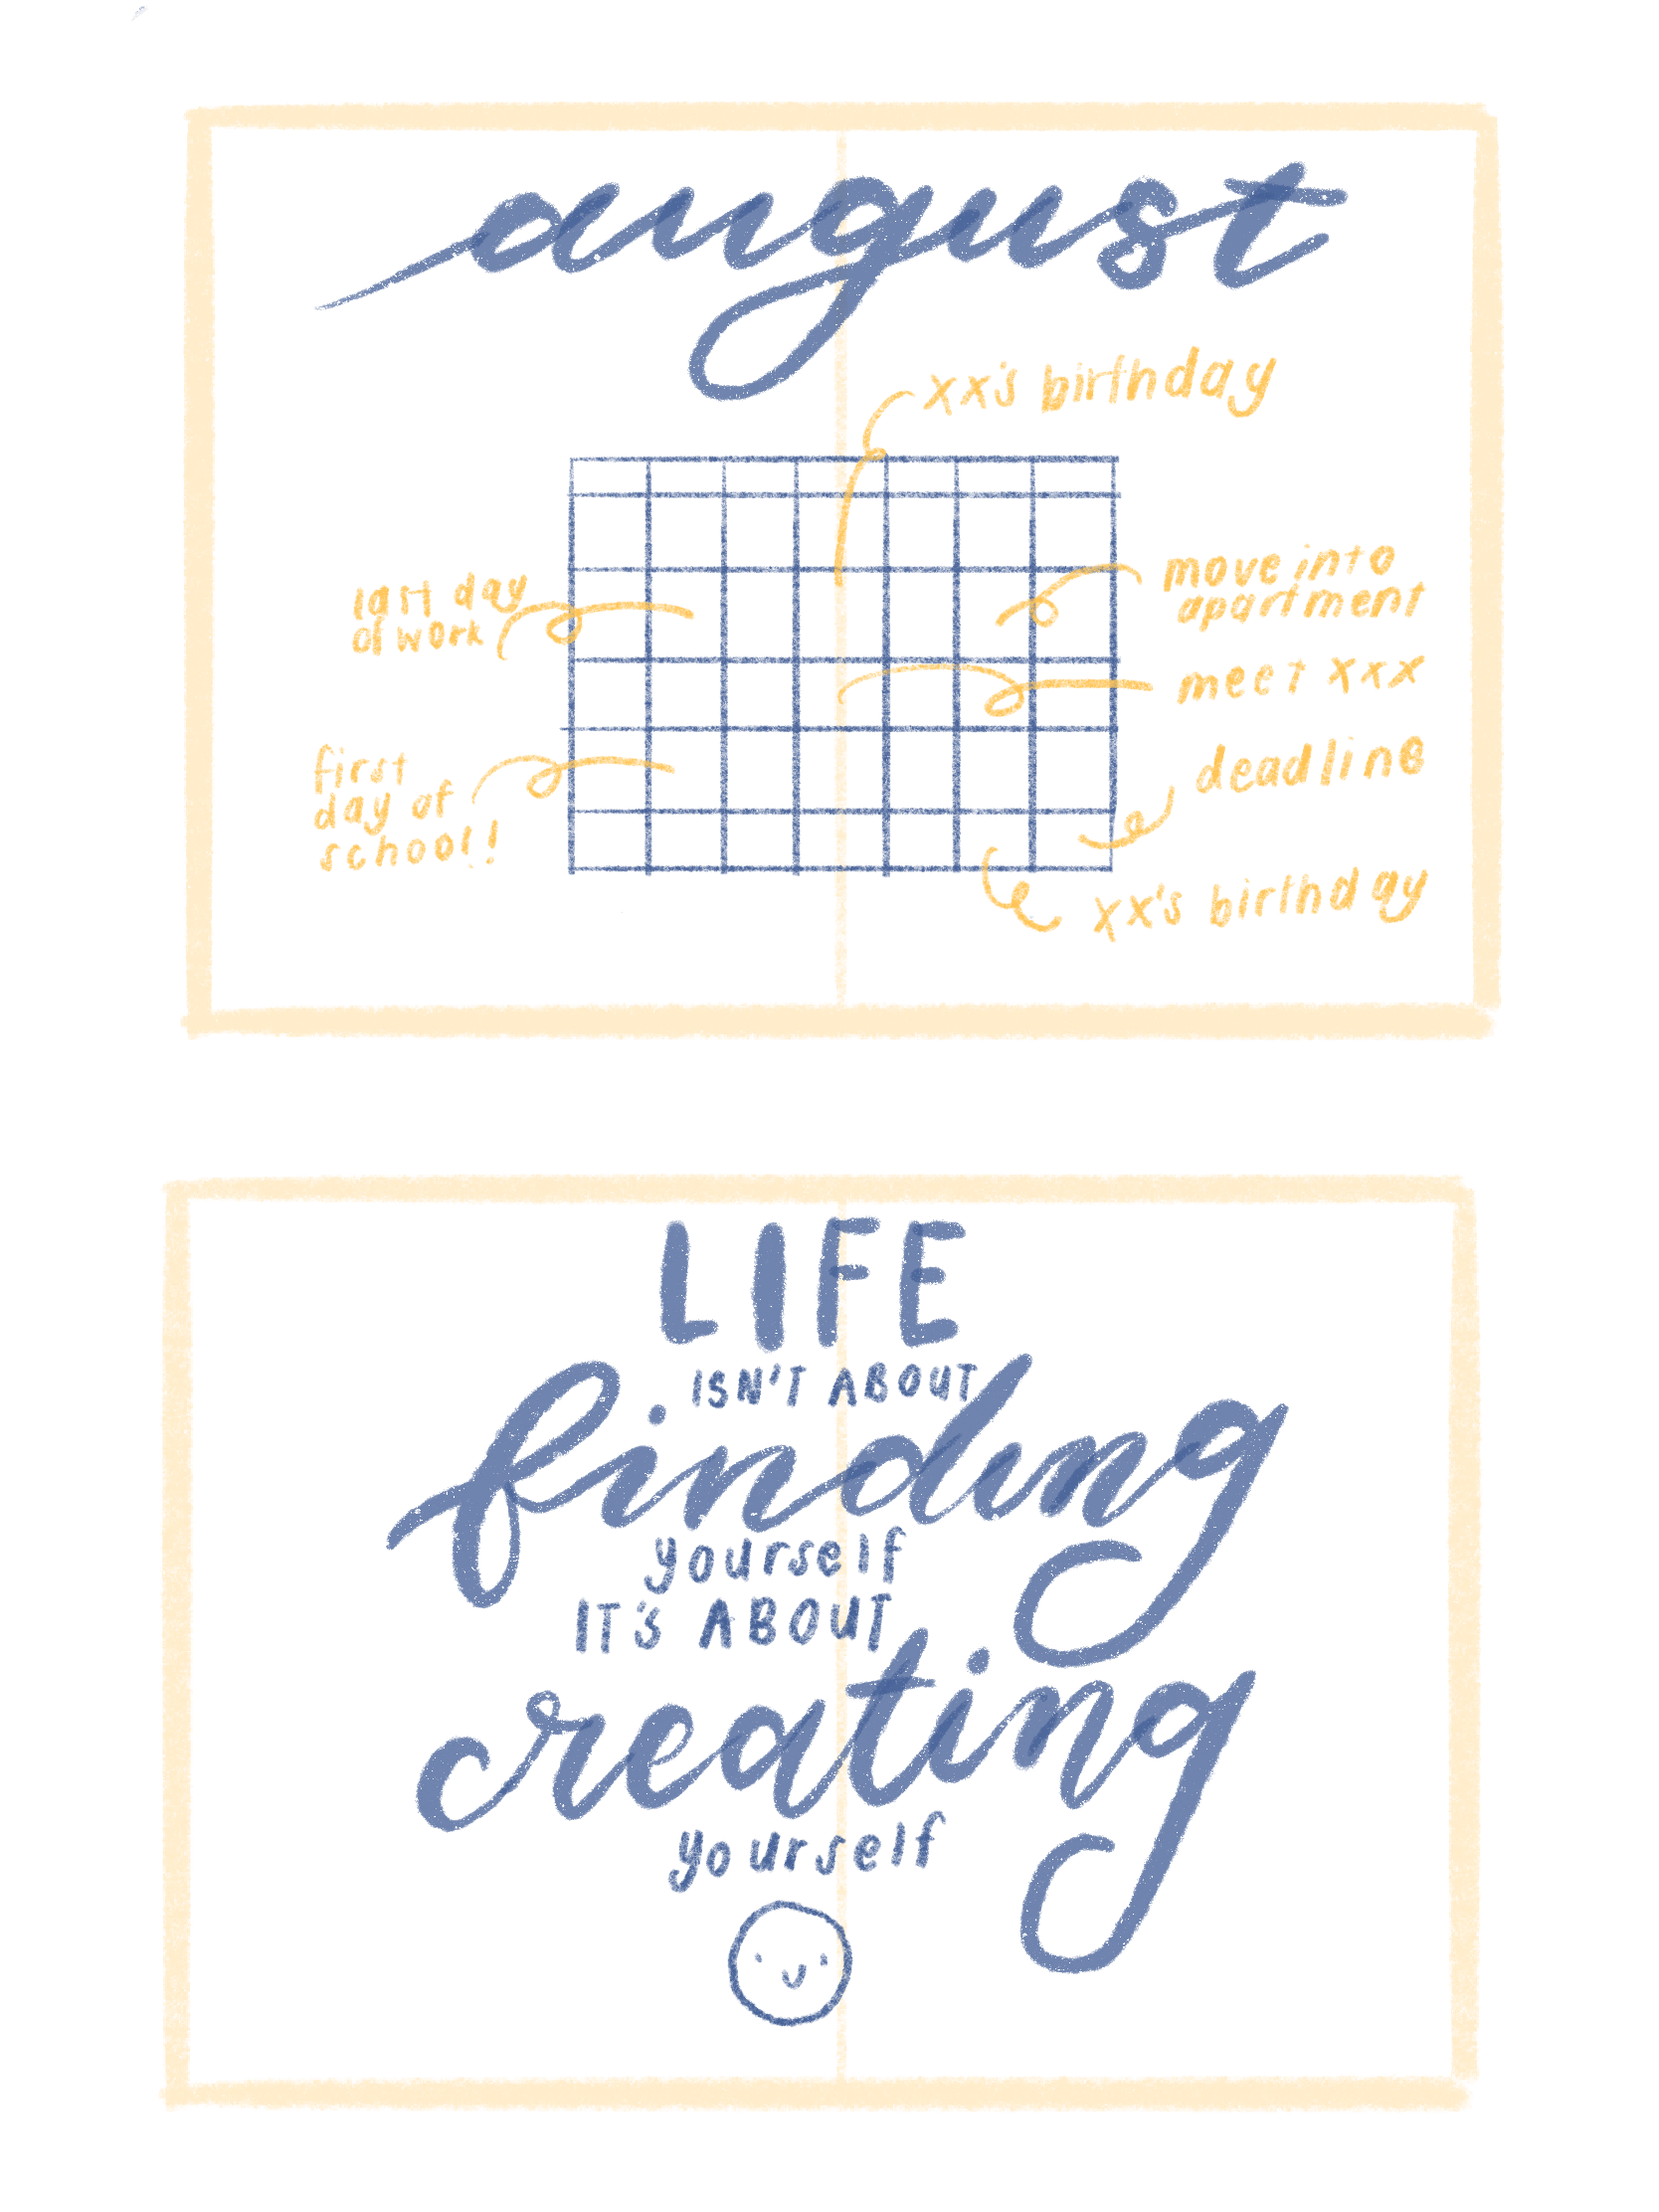 august
xx's birthday
last day
of work
move into
apartment
meet xxx
first
day of
school!!
deadline
xx's birthday
LIFE
ISN'T ABOUT
finding
yourself
IT'S ABOUT
creating
yourself